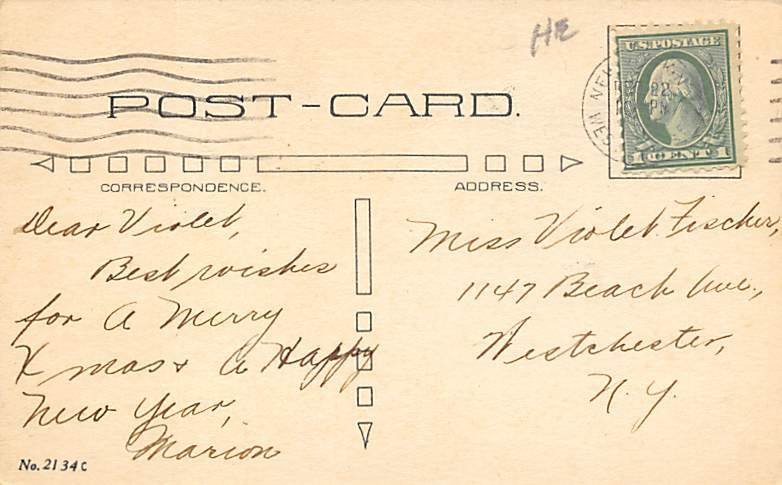 HE
U.S. POSTAGE
22
PM
1 CENT 1
POST-CARD.
CORRESPONDENCE.
ADDRESS.
Dear Violet,
Best wishes
for A Merry
Xmas & A Happy
New Year,
Marion
Miss Violet Fischer,
1147 Beach Ave.,
Westchester,
N.Y.
No. 2134 C